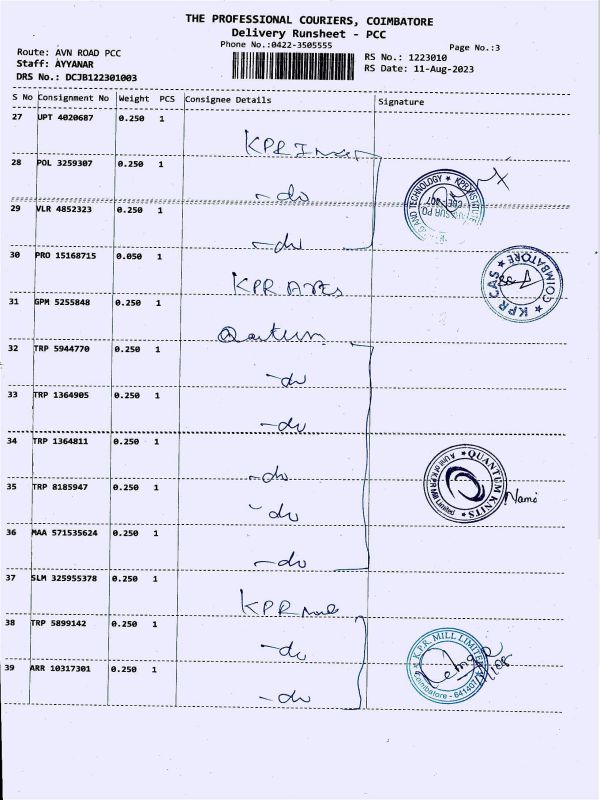 THE PROFESSIONAL COURIERS, COIMBATORE
Delivery Runsheet - PCC
Phone No.:0422-3505555
Page No.:3
Route: AVN ROAD PCC
Staff: AYYANAR
DRS No.: DCJB122301003
RS No.: 1223010
RS Date: 11-Aug-2023
S No Consignment No Weight PCS Consignee Details Signature
27 UPT 4020687 0.250 1
KPR
28 POL 3259307 0.250 1
- do
29 VLR 4852323 0.250 1
- do
30 PRO 15168715 0.050 1
KPR
31 GPM 5255848 0.250 1
32 TRP 5944770 0.250 1
- do
33 TRP 1364905 0.250 1
- do
34 TRP 1364811 0.250 1
- do
35 TRP 8185947 0.250 1
- do
36 MAA 571535624 0.250 1
- do
37 SLM 325955378 0.250 1
KPR
38 TRP 5899142 0.250 1
- do
39 ARR 10317301 0.250 1
- do
AND TECHNOLOGY ★ KPR
★ KPR CAS ★ COIMBATORE
★ QUANTUM KNITS ★
A Unit of KPR Mill Limited
K.P.R. MILL LIMITED
Coimbatore - 641407